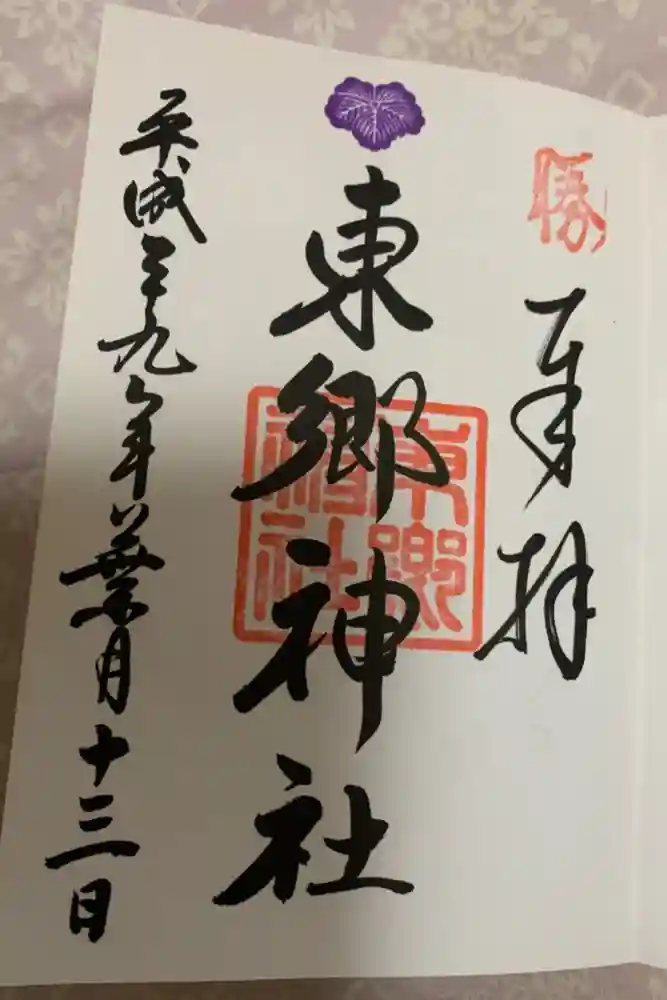 勝
奉拝
東郷神社
東郷
神社
平成二九年葉月十三日